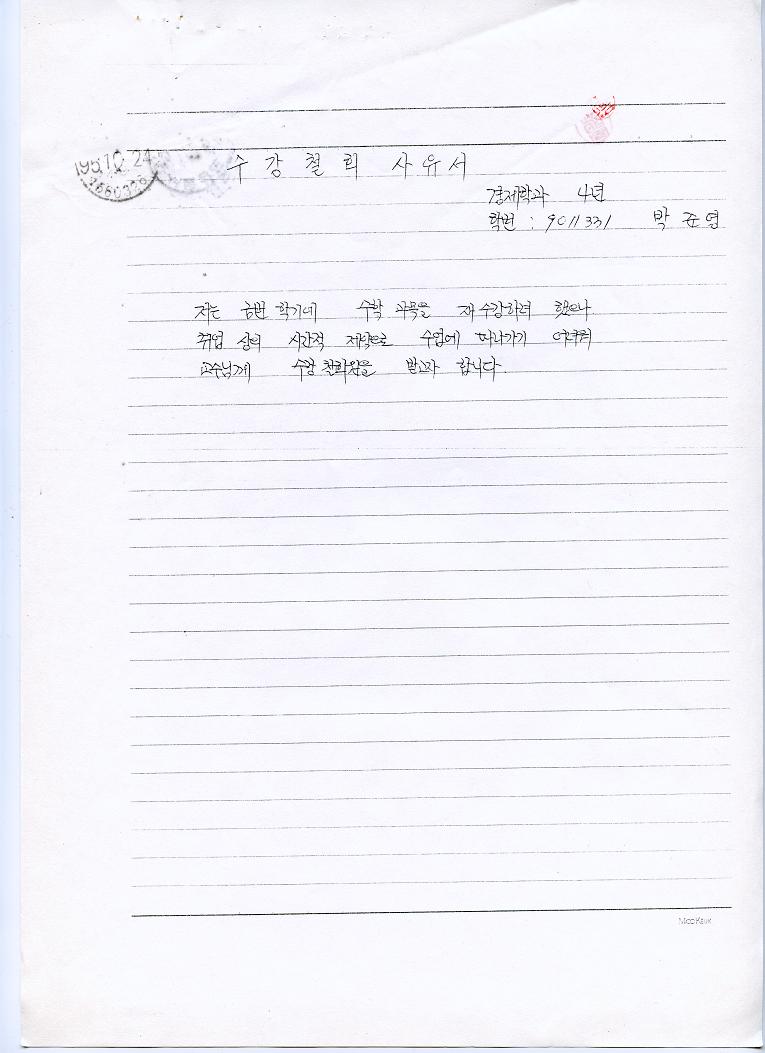 수강철회 사유서
'95.10.24
경제학과 4년
학번 : 9011331 박준영
저는 금번 학기에 수학 과목을 재수강하려 했으나
취업 상의 시간적 제약으로 수업에 따라가기 어려워
교수님께 수강 철회원을 받고자 합니다.
MooKeuk